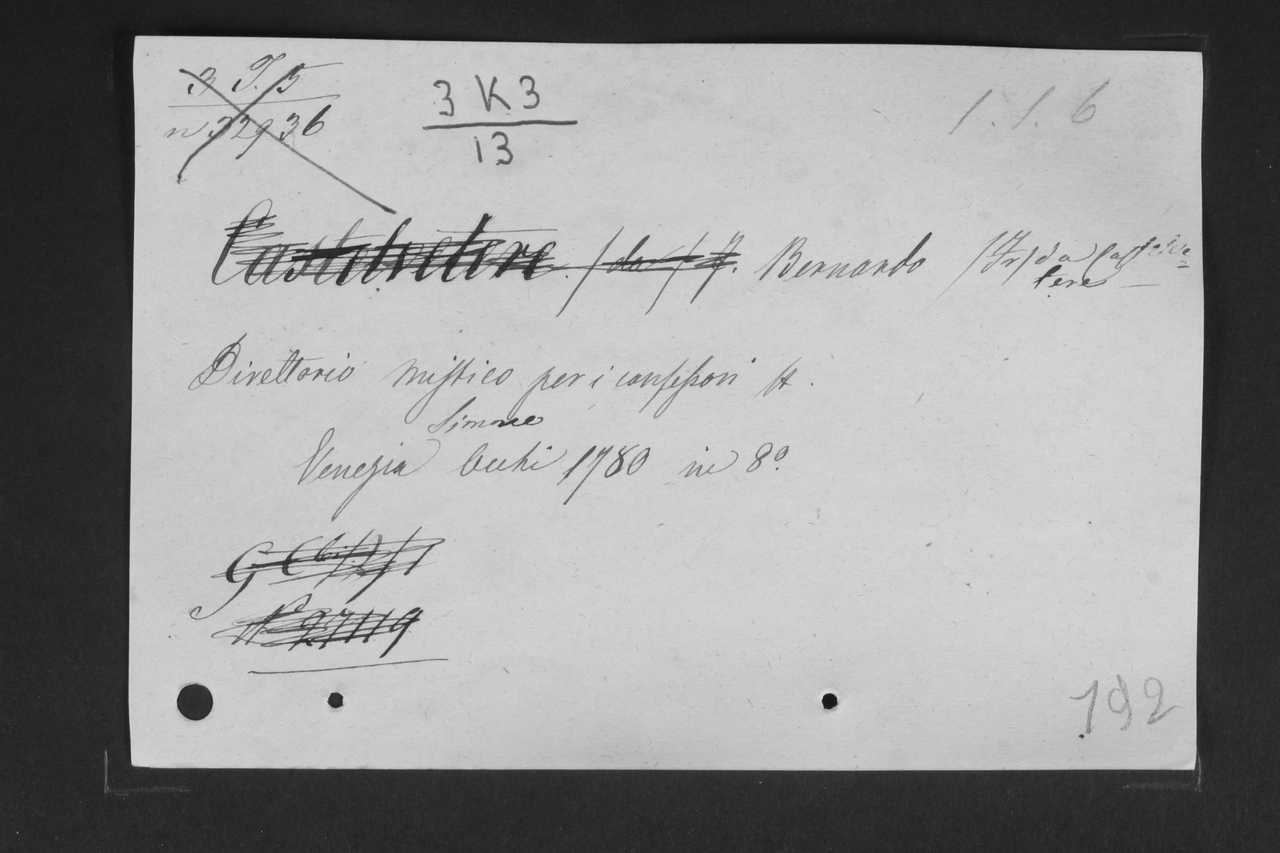 3 I. 5
n 32936
3 K 3
13
1. 1. 6
Castelvetere (da) F. Bernardo (Fr) da Castelve=
tere
Direttorio mistico per i confessori
Simone
Venezia Occhi 1780 in 8º
G
Nº 27119
192